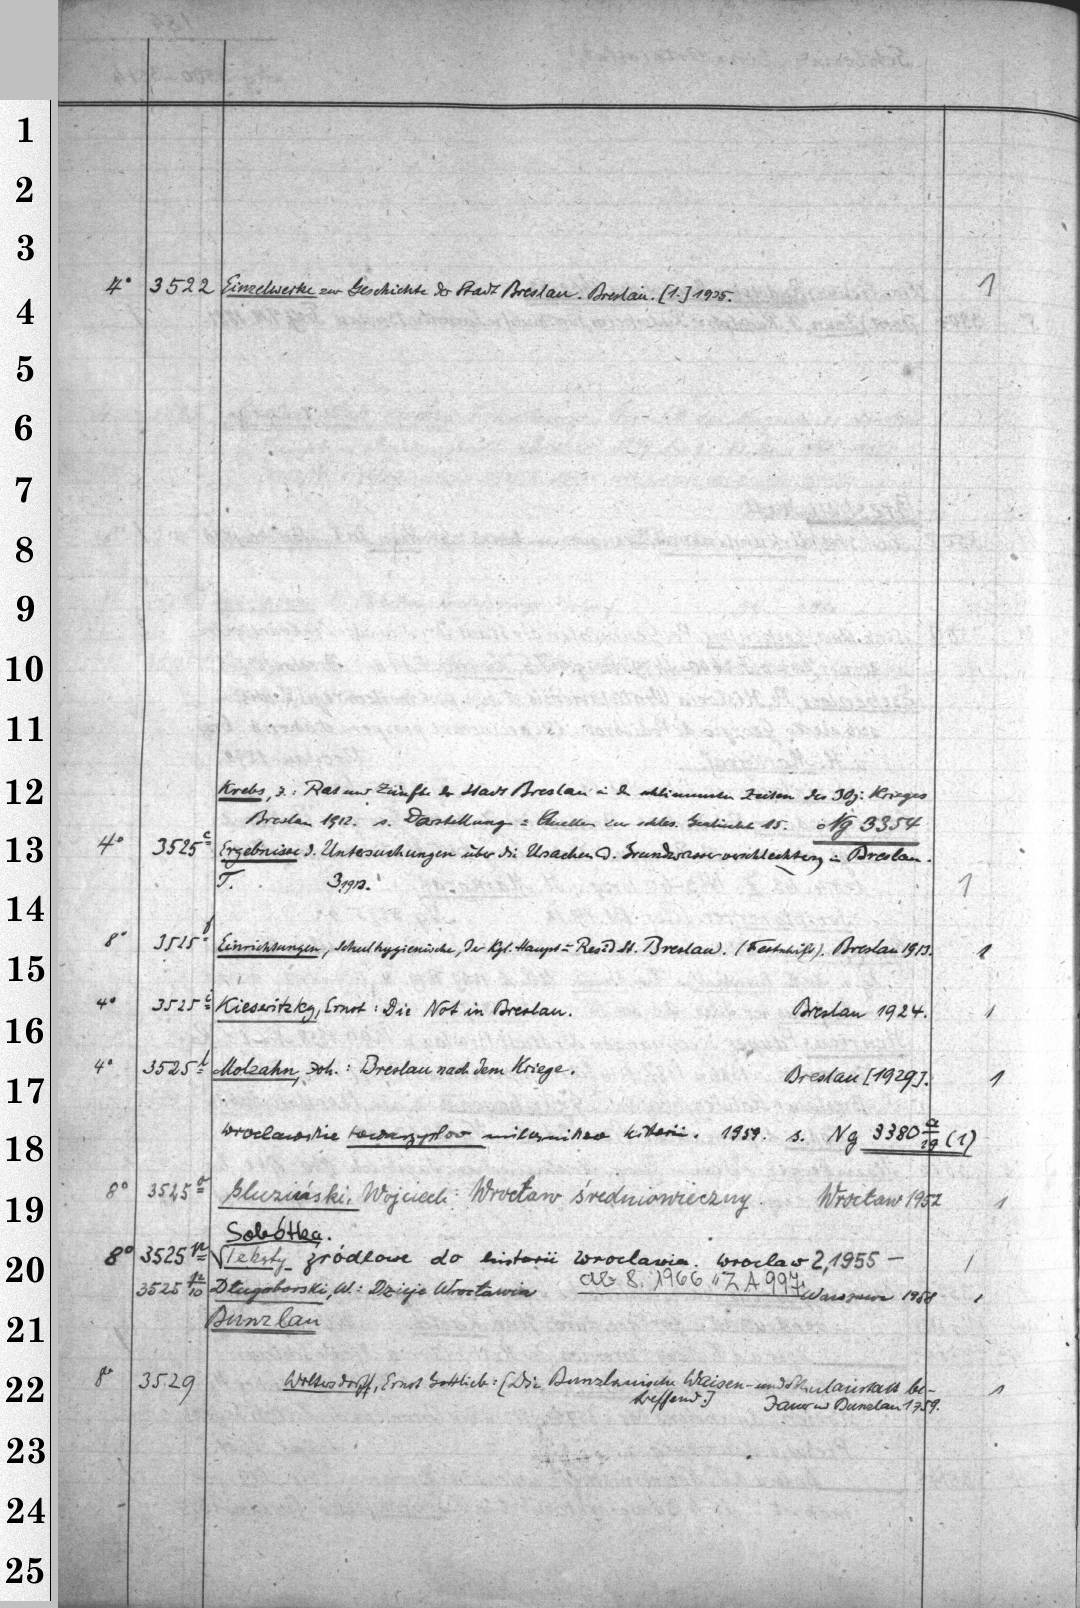 1
2
3
4° 3522 Einzelwerke zur Geschichte der Stadt Breslau. Breslau. [1.] 1925. 1
4
5
6
7
8
9
10
11
12 Krebs, J.: Rat und Zünfte der Stadt Breslau in den schlimmsten Zeiten des 30j. Krieges
Breslau 1912. s. Darstellung = Quellen zur schles. Geschichte 15. Ng 3354
13 4° 3525 e Ergebnisse d. Untersuchungen über die Ursachen d. Grundwasserverschlechterg in Breslau.
T. 3 1912. 1
14
8° 3525 f Einrichtungen, schulhygienische, der Kgl. Haupt= Resid. St. Breslau. (Festschrift). Breslau 1913. 1
15
4° 3525 i Kieseritzky, Ernst: Die Not in Breslau. Breslau 1924. 1
16
4° 3525 l Molzahn, Joh.: Breslau nach dem Kriege. Breslau [1929]. 1
17
wrocławskie towarzystwo miłośników historii. 1959. s. Ng 3380 a/29 (1)
18
8° 3525 o Głuziński, Wojciech: Wrocław średniowieczny. Wrocław 1952 1
19
Sobótka.
20 8° 3525 p Teksty źródłowe do historii wrocławia. wrocław 2,1955 — 1
ab 8. 1966 "ZA 997
3525 p/10 Długoborski, W.: Dzieje Wrocławia Warszawa 1958 1
21 Bunzlau
22 8° 3529 Woltersdorff, Ernst Gottlieb: [Die Bunzlauische Waisen- und Schulanstalt be-
treffend.] Jauer u Bunzlau 1759. 1
23
24
25